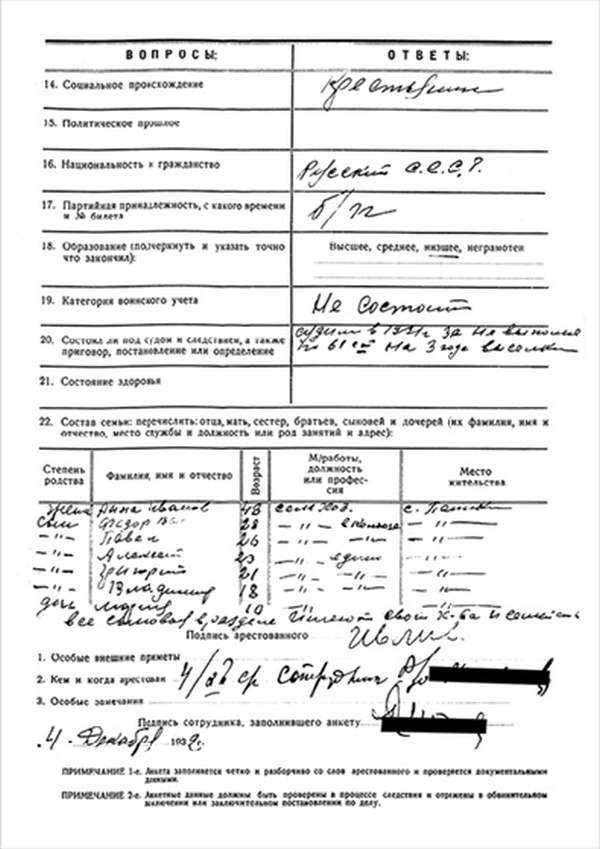 ВОПРОСЫ: ОТВЕТЫ:
14. Социальное происхождение Крестьянин
15. Политическое прошлое
16. Национальность и гражданство Русский С.С.С.Р.
17. Партийная принадлежность, с какого времени б/п
и № билета
18. Образование (подчеркнуть и указать точно Высшее, среднее, низшее, неграмотен
что закончил):
19. Категория воинского учета Не состоит
20. Состоял ли под судом и следствием, а также судим в 1931г за не выполне
приговор, постановление или определение 61 ст на 3 года высылки
21. Состояние здоровья
22. Состав семьи: перечислить: отца, мать, сестер, братьев, сыновей и дочерей (их фамилия, имя и
отчество, место службы и должность или род занятий и адрес):
Степень родства Фамилия, имя и отчество Возраст М/работы, должность или профессия Место жительства
жена Анна Иванов 48 с.
сын 28 -"- -"-
-"- Павел 26 -"- -"- -"-
-"- Алексей -"- -"-
-"- Григорий 21 -"- -"- -"-
-"- Владимир 18 -"- -"- -"-
дочь Мария 10
все сыновья в разделе имеют свои х-ва и семейств
Подпись арестованного
1. Особые внешние приметы
2. Кем и когда арестован 4/ сотрудник
3. Особые замечания
Подпись сотрудника, заполнившего анкету
4 Декабря 193 г.
ПРИМЕЧАНИЕ 1-е. Анкета заполняется четко и разборчиво со слов арестованного и проверяется документальными
данными.
ПРИМЕЧАНИЕ 2-е. Анкетные данные должны быть проверены в процессе следствия и отражены в обвинительном
заключении или заключительном постановлении по делу.